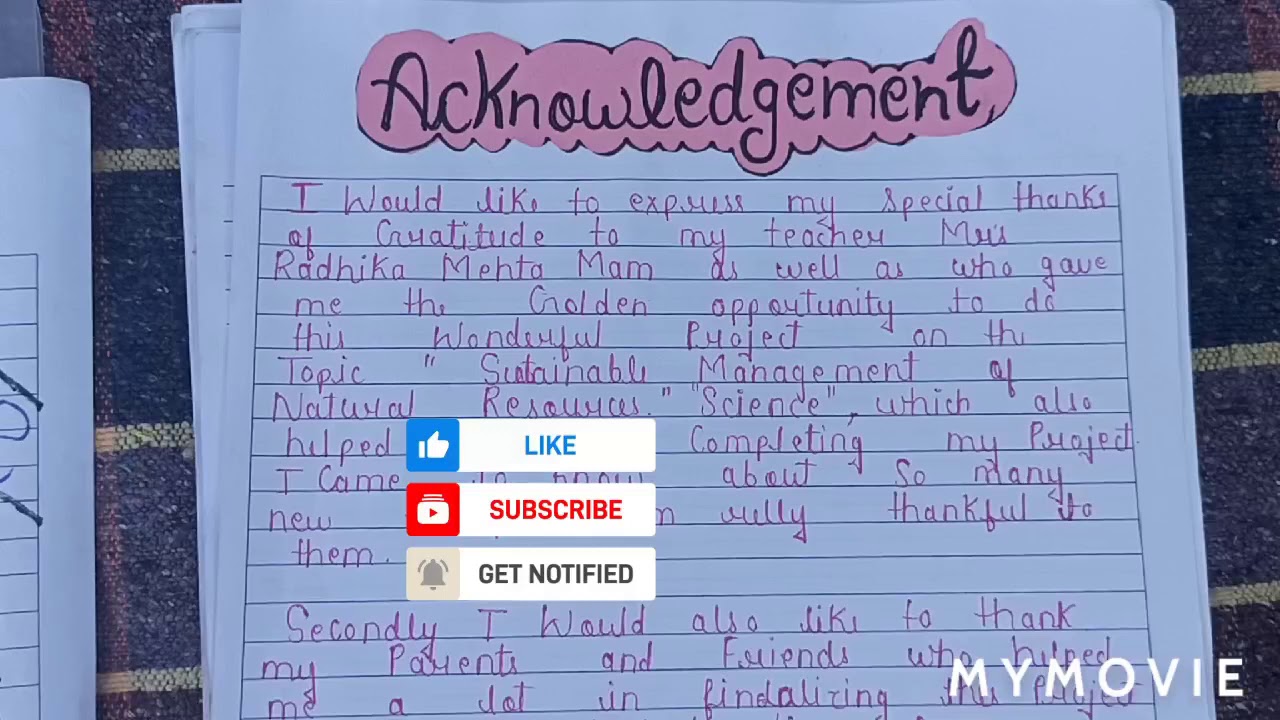 Acknowledgement
I Would like to express my special thanks
of Gratitude to my teacher Mris
Radhika Mehta Mam as well as who gave
me the Golden opportunity to do
this Wonderful Project on the
Topic " Sustainable Management of
Natural Resources." "Science", which also
helped Completing my Project.
I Came to know about So many
new relly thankful to
them.
LIKE
SUBSCRIBE
GET NOTIFIED
Secondly I Would also like to thank
my Parents and Friends who helped
me a lot in findalizing this Project
MYMOVIE